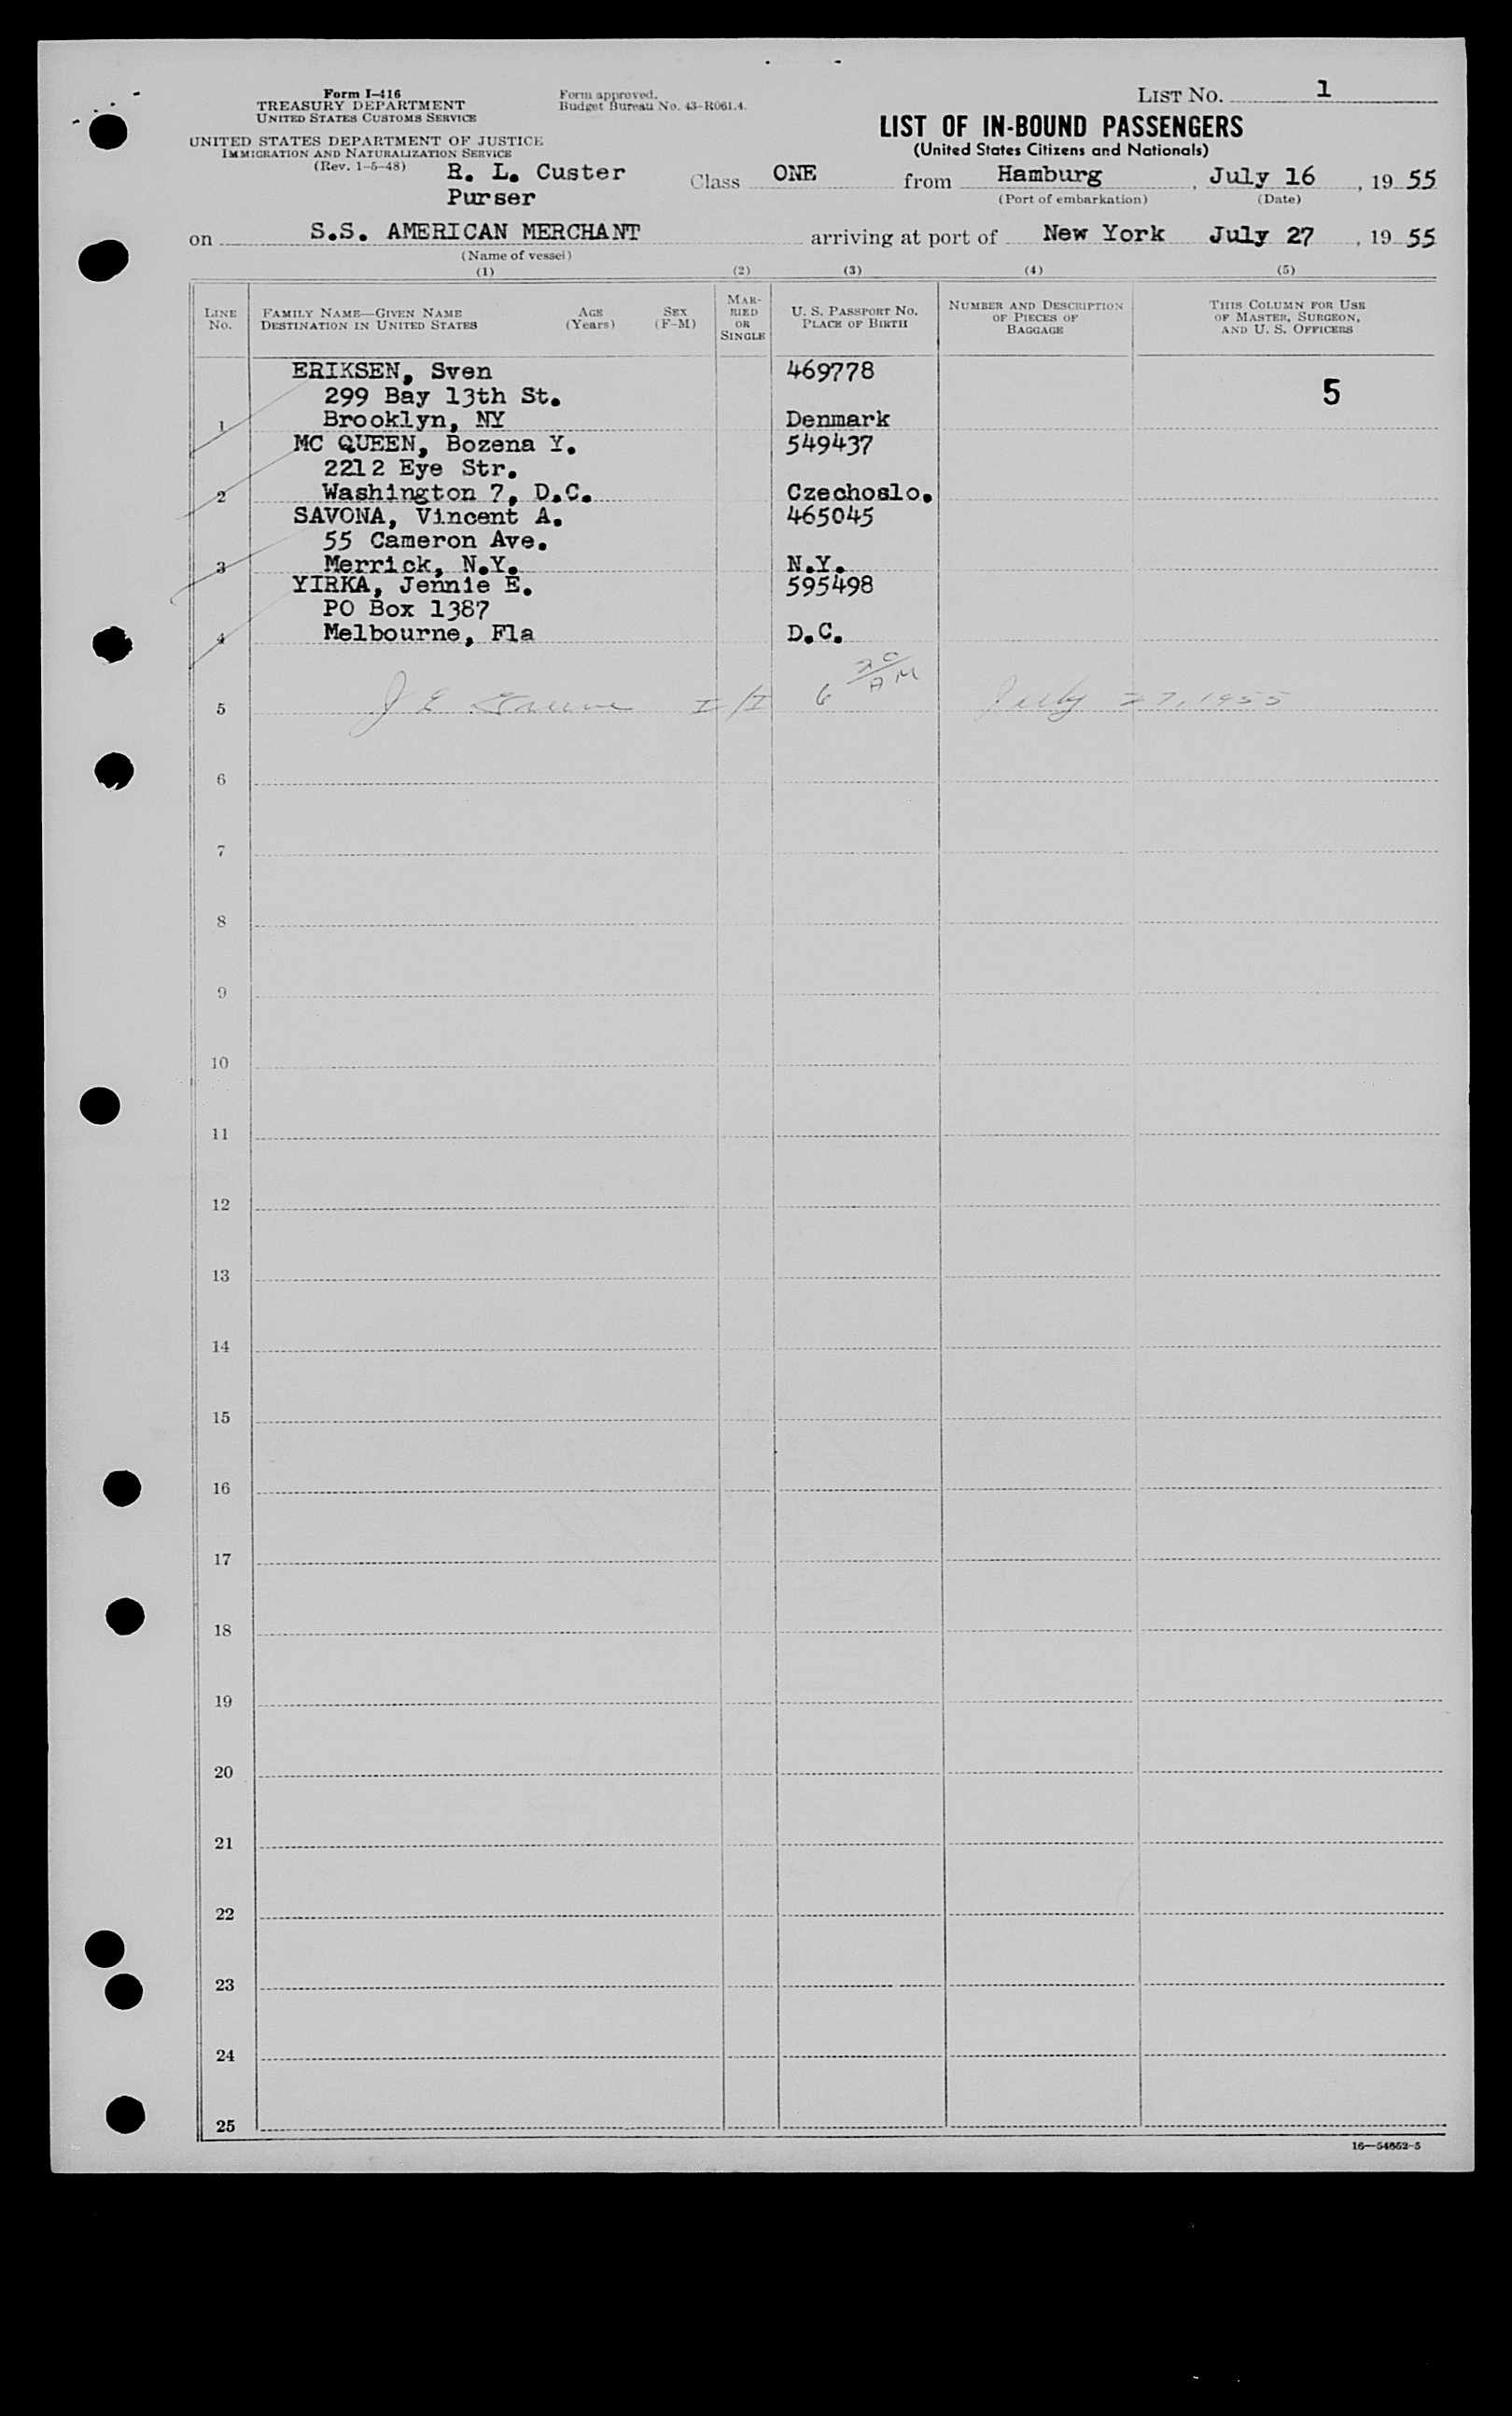 Form I-416
TREASURY DEPARTMENT
UNITED STATES CUSTOMS SERVICE
UNITED STATES DEPARTMENT OF JUSTICE
IMMIGRATION AND NATURALIZATION SERVICE
(Rev. 1-5-48)
Form approved.
Budget Bureau No. 43-R061.4.
LIST NO. 1
LIST OF IN-BOUND PASSENGERS
(United States Citizens and Nationals)
R. L. Custer
Purser
Class ONE from Hamburg, July 16, 19 55
(Port of embarkation) (Date)
on S.S. AMERICAN MERCHANT arriving at port of New York July 27, 19 55
(Name of vessel)
(1) (2) (3) (4) (5)
LINE No.
FAMILY NAME—GIVEN NAME
DESTINATION IN UNITED STATES
AGE (Years)
SEX (F-M)
MARRIED OR SINGLE
U. S. PASSPORT NO.
PLACE OF BIRTH
NUMBER AND DESCRIPTION OF PIECES OF BAGGAGE
THIS COLUMN FOR USE OF MASTER, SURGEON, AND U. S. OFFICERS
ERIKSEN, Sven 469778
299 Bay 13th St. 5
1 Brooklyn, NY Denmark
MC QUEEN, Bozena Y. 549437
2212 Eye Str.
2 Washington 7, D.C. Czechoslo.
SAVONA, Vincent A. 465045
55 Cameron Ave.
3 Merrick, N.Y. N.Y.
YIRKA, Jennie E. 595498
PO Box 1387
4 Melbourne, Fla D.C.
5 J E I/I 6 30 AM July 27, 1955
6
7
8
9
10
11
12
13
14
15
16
17
18
19
20
21
22
23
24
25
16—54652-5